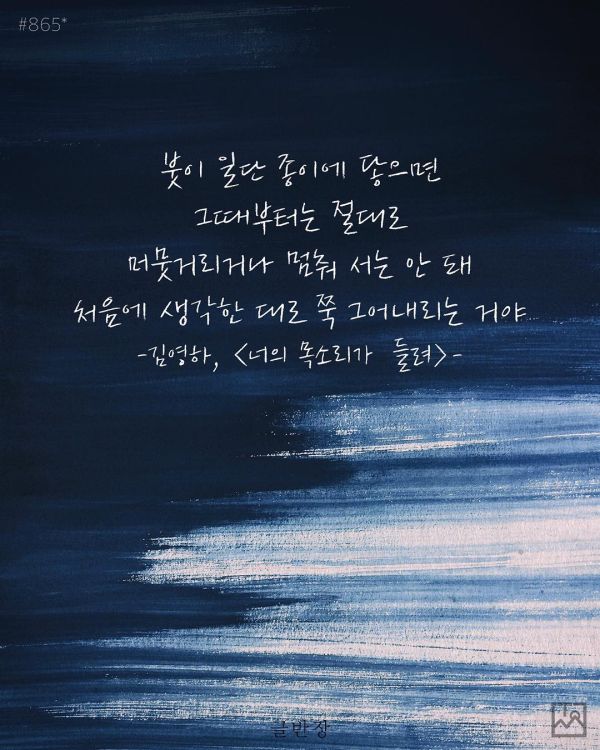 #865*
붓이 일단 종이에 닿으면
그때부터는 절대로
머뭇거리거나 멈춰 서는 안 돼
처음에 생각한 대로 쭉 그어내리는 거야
-김영하, <너의 목소리가 들려>-
글반장